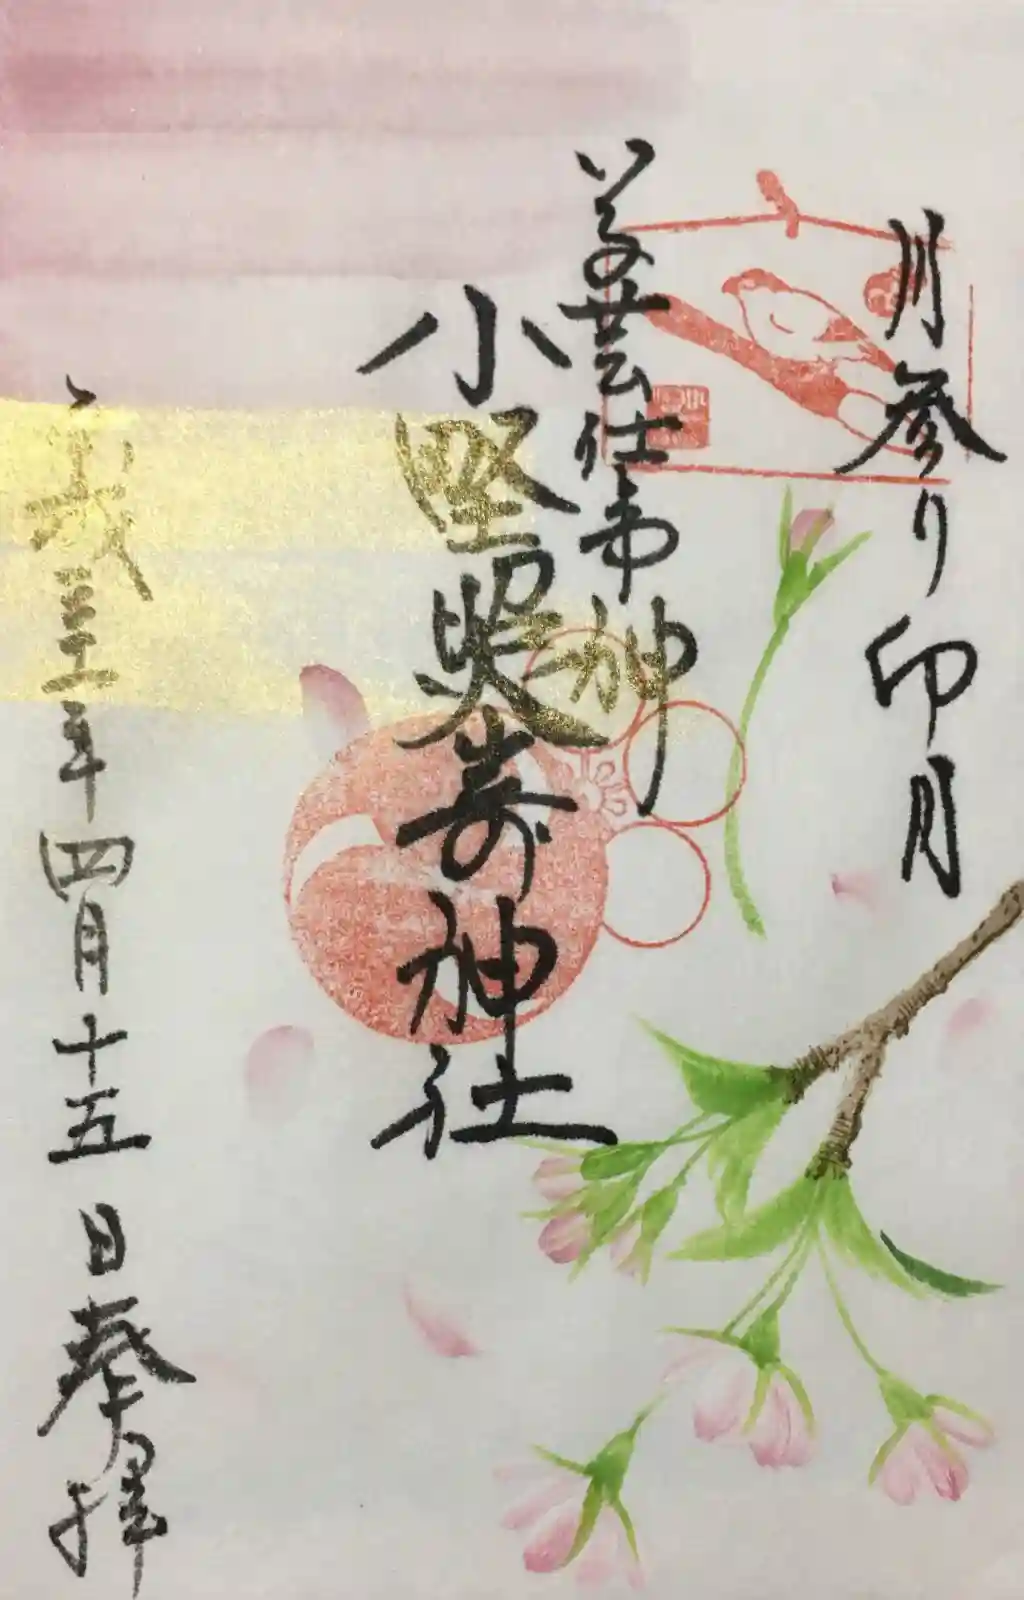 月参り 卯月
学芸仕事神
小野照崎神社
平成三十一年四月十五日奉拝